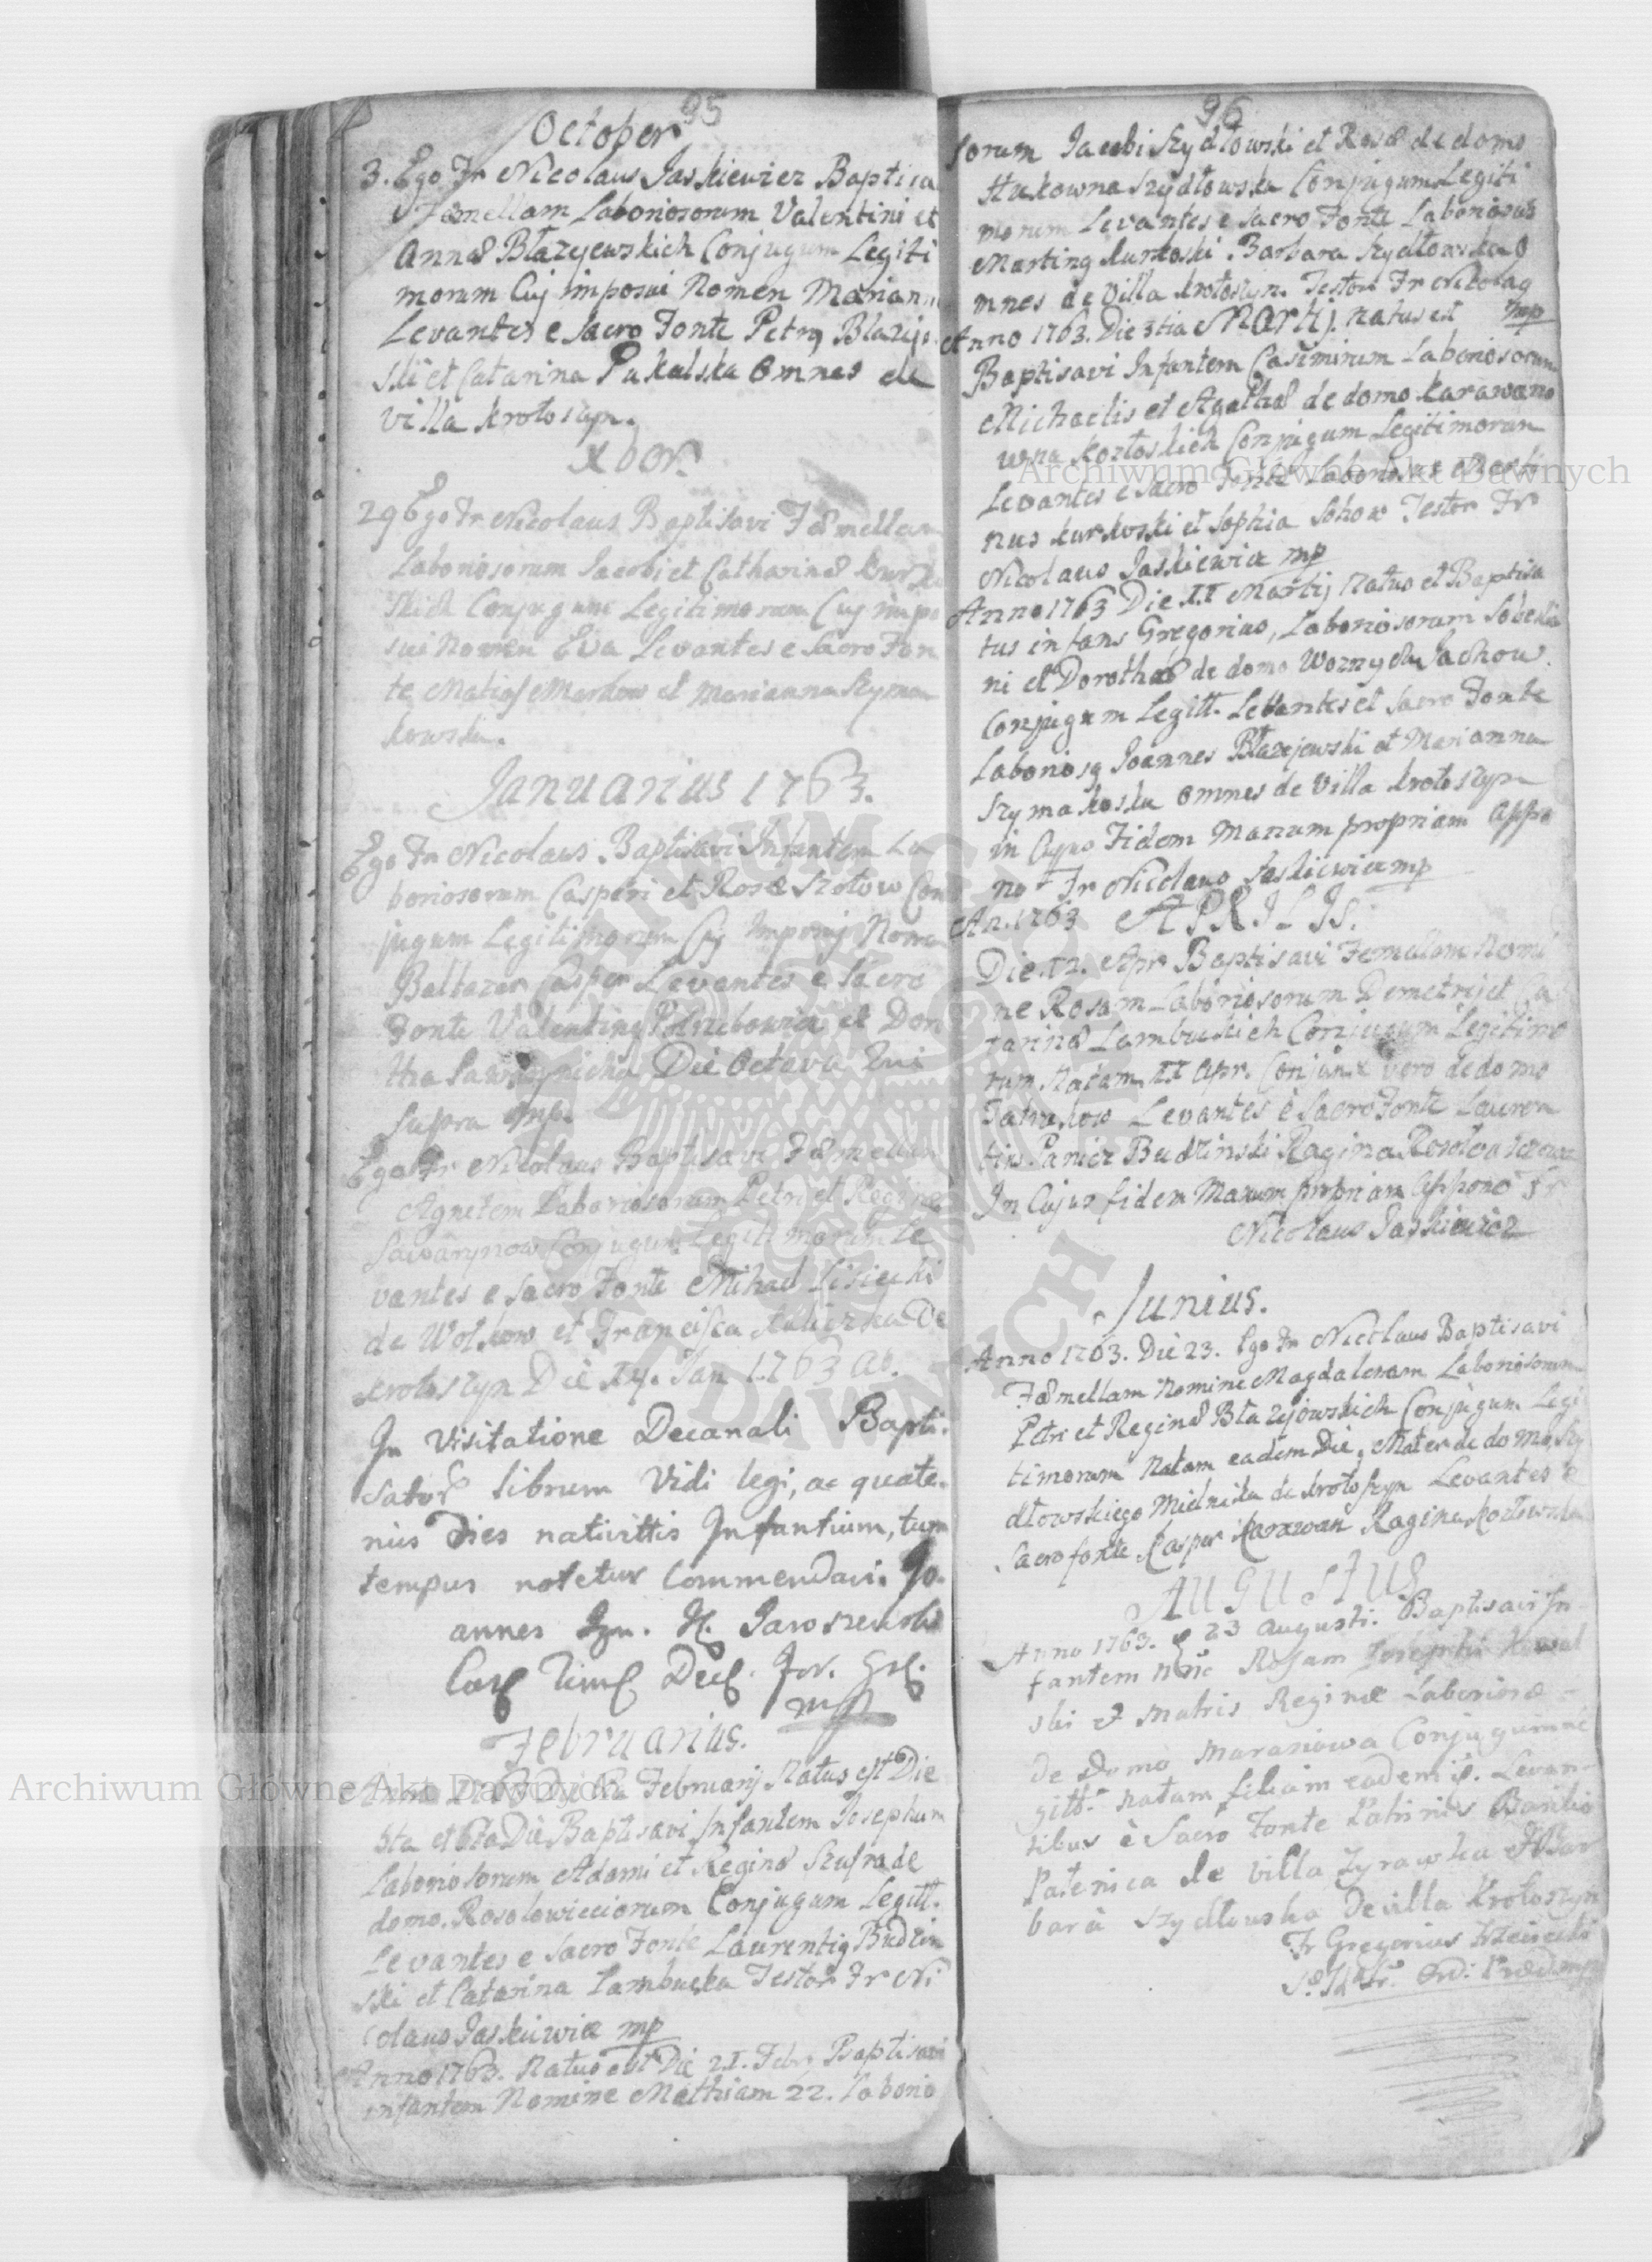 95
October
3. Ego Fr Nicolaus Jaskiewicz Baptisa
Fæmellam Laboriosorum Valentini et
Annæ Błazejewskich Conjugum Legiti
morum Cuj imposui Nomen Mariann
Levantes e Sacro Fonte Petrg Blazeje
ski et Catarina Pukalska Omnes de
villa Krotoszyn.
Xbor.
29 Ego Fr Nicolaus Baptisavi Fæmellam
Laboriosorum Jacobi et Catharinæ
skich Conjugum Legitimorum Cuj impo
sui Nomen Eva Levantes e Sacro Fon
te Matias Markow et Marianna Szyma
kowska.
Januarius 1763.
Ego Fr Nicolaus Baptisavi Infantem La
boriosorum Casperi et Rosæ Szotow Con
jugum Legitimorum Cuj Imposuj Nomen
Baltazar Casper Levantes e Sacro
Fonte Valenting et Doro
thea Die Octava Qui
Supra mp.
Ego Fr Nicolaus Baptisavi Fæmellam
Agnetem Laboriosorum Petri et Reginæ
Sawarynow Conjugum Legitimorum Le
vantes e Sacro Fonte Michael Lisiecki
de Wolkow et Francisca De
Krotoszyn Die Jan 1763 ao.
In Visitatione Decanali Bapti-
sator. librum Vidi legi, ac quate-
nus Dies nativittis Infantium, tum
tempus notetur Commendavi. Jo-
annes H. Jaroszewski
mp
Februarius.
Februarij Natus est Die
5ta et 6ta Die Baptisavi Infantem Josephum
Laboriosorum Adami et Reginæ Szufra de
domo Rosolowicciorum Conjugum Legitt.
Levantes e Sacro Fonte Laurentig Budzin
ski et Catarina Lambucka Testor Fr Ni
colaus Jaskiewicz mp
Anno 1763. Natus est Die 21. Febr. Baptisavi
infantem Nomine Mathiam 22. Laborio
96
sorum Jacobi Szydłowski et Rosæ de domo
Hukowna Szydłowska Conjugum Legiti
morum Levantes e Sacro Fonte Laboriosus
Marting Kurkoski Barbara Szydłowska O
mnes de Villa Krotoszyn. Testor Fr Nikolag
mp
Anno 1763. Die 3tia Martij. natus est
Baptisavi Infantem Casimirum Laboriosorum
Michaelis et Agathæ de domo Karawano
wna Kozłoskich Conjugum Legitimorum
Levantes e Sacro Fonte Laboriosus Marti
nus Kurkoski et Sophia Sohow Testor Fr
Nicolaus Jaskiewicz mp
Anno 1763 Die II Martij Natus et Baptisa
tus infans Gregorius, Laboriosorum Sobestia
ni et Dorothæ de domo Woznych Sachow.
Conjugum Legitt. Levantes et Sacro Fonte
Laboriosg Joannes Błazejewski et Marianna
Szymakoska omnes de Villa Krotoszyn
in Cujus Fidem Manum propriam Appo
no Fr Nicolaus Jaskiewicz mp
An. 1763 APRILIS.
Die 12. Apr Baptisavi Femellam Nomi
ne Rosam Laboriosorum Demetrij et Ca
tarinæ Lambuckich Conjugum Legitimo
rum Natam II Apr. Conjunx vero de domo
Levantes è Sacro Fonte Lauren
tius Panicz Budzinski Ragina
In Cujus fidem Manum propriam Appono Fr
Nicolaus Jaskiewicz
Junius.
Anno 1763. Die 23. Ego Fr Nicolaus Baptisavi
Fæmellam Nomine Magdalenam Laboriosorum
Petri et Reginæ Błazejowskich Conjugum Legi
timorum Natam eadem Die, Mater de domo Szy
dłowskiego Mielnika de Krotoszyn Levantes è
Sacro fonte Kasper Karawan Ragina Kozłowska
AUGUSTUS
Anno 1763. 23 Augusti. Baptisavi In-
fantem nne Rosam Josephi Kowal
ski et Matris Reginæ Laborios
de Domo Maraniowa Conjugum
gitt. natam filiam eadem Levan-
tibus è Sacro Fonte Patrinis Basilio
Patenica de villa Zyrawka et Bar
bara Szydłowska De villa Krotoszyn
Fr Gregorius
Ord: Præd mp
Archiwum Główne Akt Dawnych
Archiwum Główne Akt Dawnych
ARCHIWUM GŁÓWNE AKT DAWNYCH